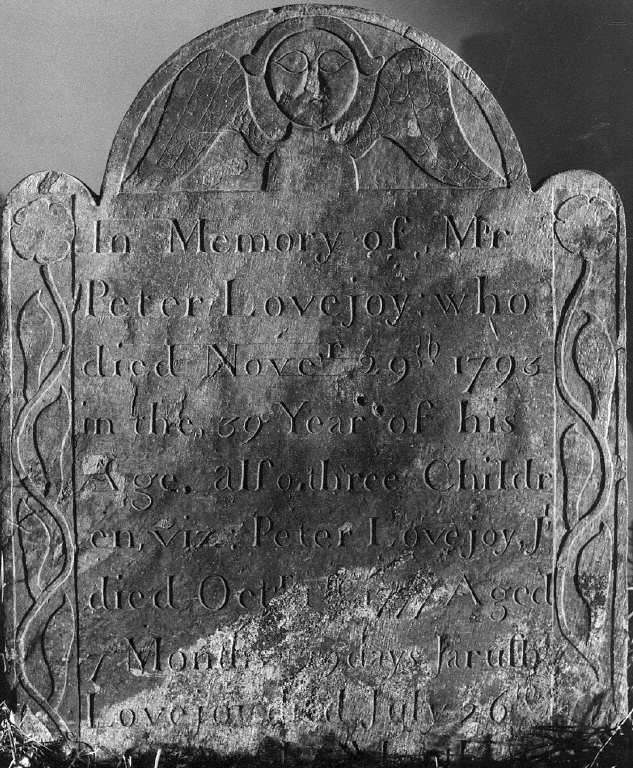 In Memory of Mr
Peter Lovejoy: who
died Nover 29th 1793
in the, 39 Year of his
Age. alſo, three Childr
en, viz: Peter Lovejoy, Jr
died Octr 1777 Aged
7 Months 19 days Jaruſh
Lovejoy died July 26th